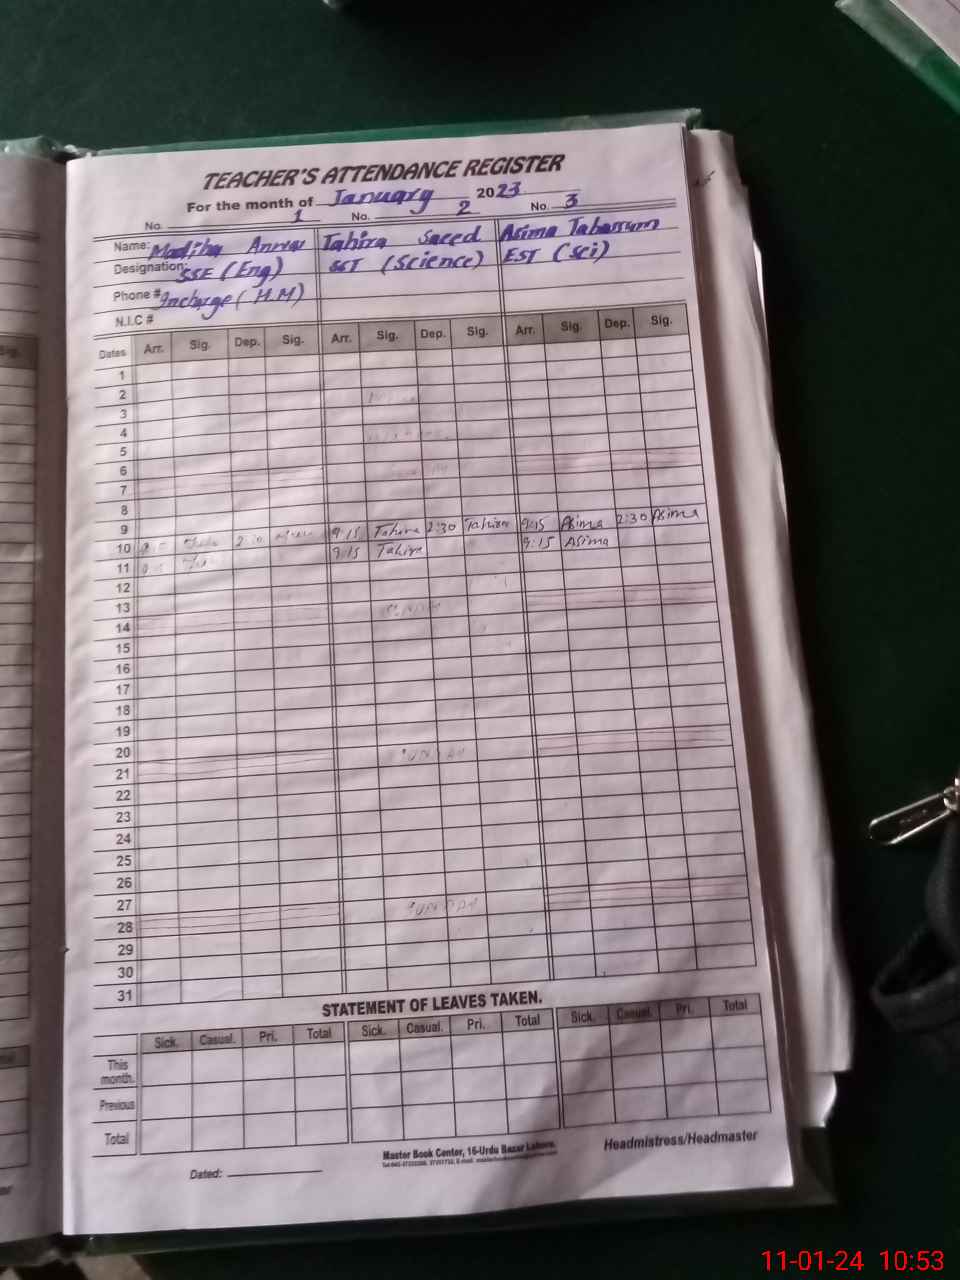 TEACHER'S ATTENDANCE REGISTER
For the month of January 2023
No. 1 No. 2 No. 3
Name: Madiha Tahira Saeed Asima Tabassum
Designation: SSE (Eng) SST (Science) EST (Sci)
Phone # Incharge (H.M)
N.I.C #
Dates Arr. Sig. Dep. Sig. Arr. Sig. Dep. Sig. Arr. Sig. Dep. Sig.
1
2
3
4
5
6
7
8
9
10 9:15 Tahira 2:30 Tahira 9:15 Asima 2:30 Asima
11 9:15 Tahira 9:15 Asima
12
13
14 SUNDAY
15
16
17
18
19
20
21 SUNDAY
22
23
24
25
26
27
28 SUNDAY
29
30
31
STATEMENT OF LEAVES TAKEN.
Sick. Casual. Pri. Total Sick. Casual. Pri. Total Sick. Casual. Pri. Total
This month.
Previous
Total
Dated:
Master Book Center, 16-Urdu Bazar Lahore.
Headmistress/Headmaster
11-01-24 10:53